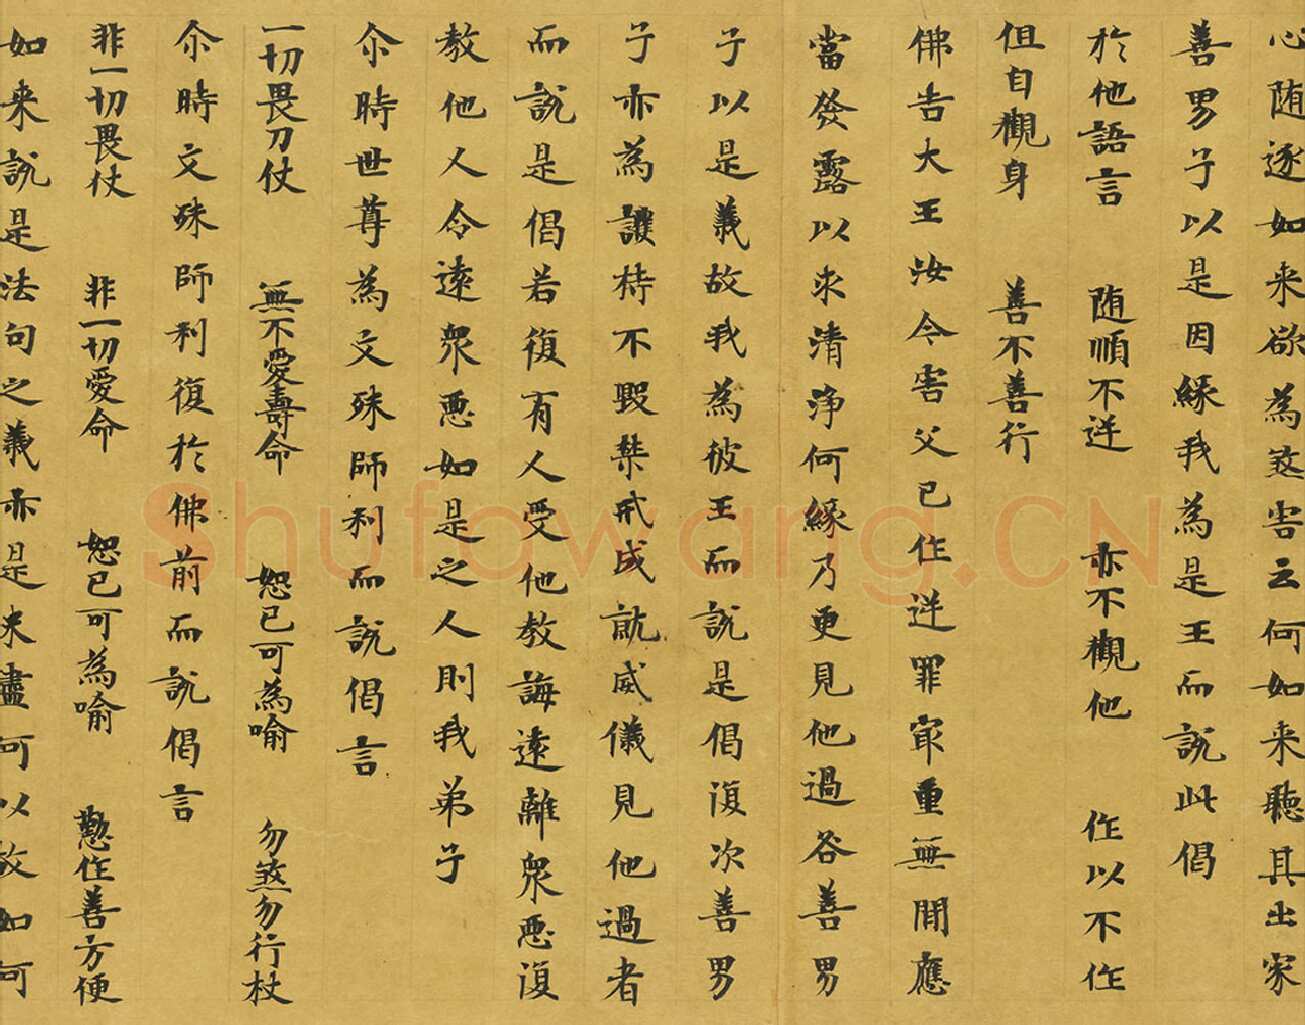 心随逐如来欲為煞害云何如来聽其出家
善男子以是因緣我為是王而說此偈
於他語言 随順不逆 亦不觀他 作以不作
但自觀身 善不善行
佛告大王汝今害父已作逆罪㝡重無間應
當發露以求清淨何緣乃更見他過咎善男
子以是義故我為彼王而說是偈復次善男
子亦為護持不毀禁戒成就威儀見他過者
而說是偈若復有人受他教誨遠離衆惡復
教他人令遠衆惡如是之人則我弟子
尒時世尊為文殊師利而說偈言
一切畏刀杖 無不愛壽命 恕已可為喻 勿煞勿行杖
尒時文殊師利復於佛前而說偈言
非一切畏仗 非一切愛命 恕已可為喻 懃作善方便
如来說是法句之義亦是未盡何以故如何
Shufawang.CN